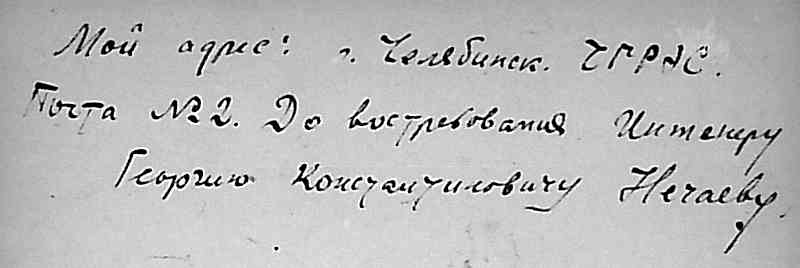 Мой адрес: г. Челябинск. ЧГРЭС.
Почта № 2. До востребования Инженеру
Георгию Константиновичу Нечаеву.